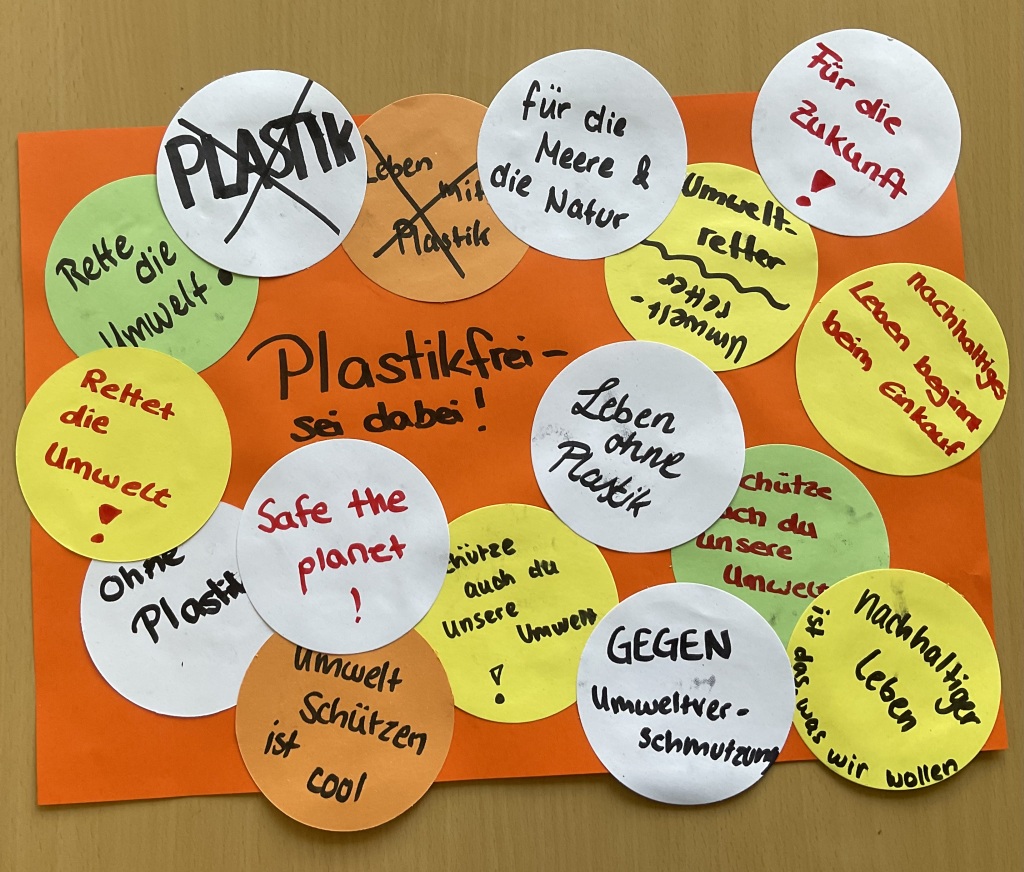 PLASTIK
Leben
mit
Plastik
für die
Meere &
die Natur
Für die
Zukunft
!
Rette
die
Umwelt
Umwelt-
retter
Umwelt-
retter
nachhaltiges
Leben beginnt
beim Einkauf
Plastikfrei-
sei dabei!
Rettet
die
Umwelt
!
Leben
ohne
Plastik
chütze
uch du
unsere
Umwelt
Ohne
Plastik
Safe the
planet
!
chütze
auch du
unsere
Umwelt
!
Umwelt
Schützen
ist
cool
GEGEN
Umweltver-
schmutzung
nachhaltiger
Leben
ist das, was wir wollen